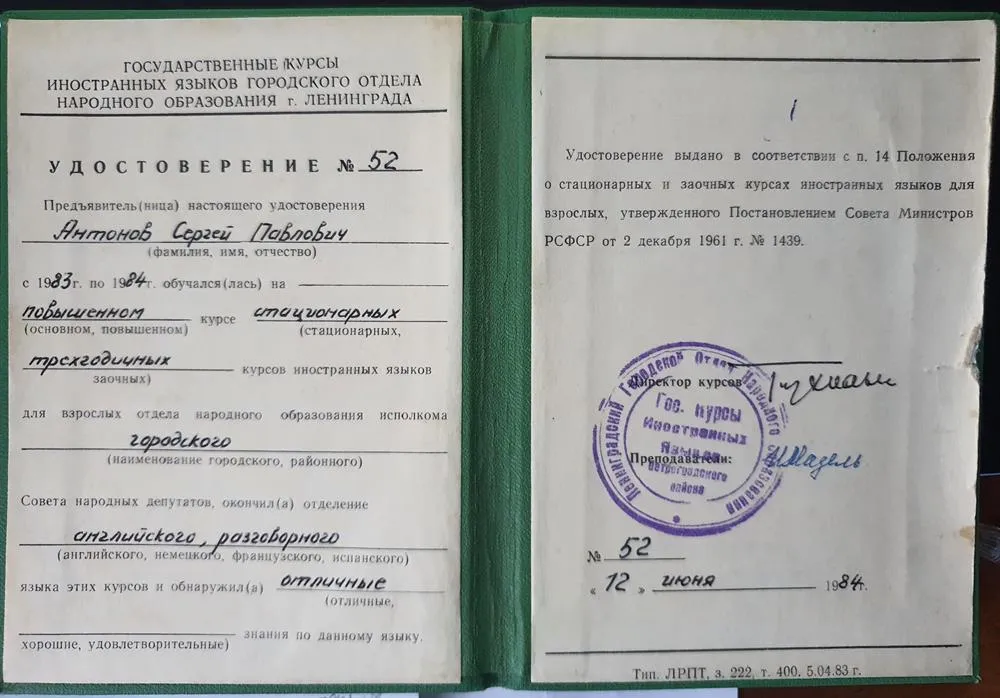 ГОСУДАРСТВЕННЫЕ КУРСЫ
ИНОСТРАННЫХ ЯЗЫКОВ ГОРОДСКОГО ОТДЕЛА
НАРОДНОГО ОБРАЗОВАНИЯ г. ЛЕНИНГРАДА
УДОСТОВЕРЕНИЕ № 52
Предъявитель(ница) настоящего удостоверения
Антонов Сергей Павлович
(фамилия, имя, отчество)
с 1983г. по 1984г. обучался(лась) на
повышенном курсе стационарных
(основном, повышенном) (стационарных,
трехгодичных курсов иностранных языков
заочных)
для взрослых отдела народного образования исполкома
городского
(наименование городского, районного)
Совета народных депутатов, окончил(а) отделение
английского, разговорного
(английского, немецкого, французского, испанского)
языка этих курсов и обнаружил(а) отличные
(отличные,
знания по данному языку.
хорошие, удовлетворительные)
Удостоверение выдано в соответствии с п. 14 Положения
о стационарных и заочных курсах иностранных языков для
взрослых, утвержденного Постановлением Совета Министров
РСФСР от 2 декабря 1961 г. № 1439.
Директор курсов
Преподаватели:
Ленинградский Городской Отдел Народного Образования
Гос. Курсы
Иностранных
Языков
Петроградского
района
№ 52
« 12 » июня 1984г.
Тип. ЛРПТ, з. 222, т. 400. 5.04.83 г.